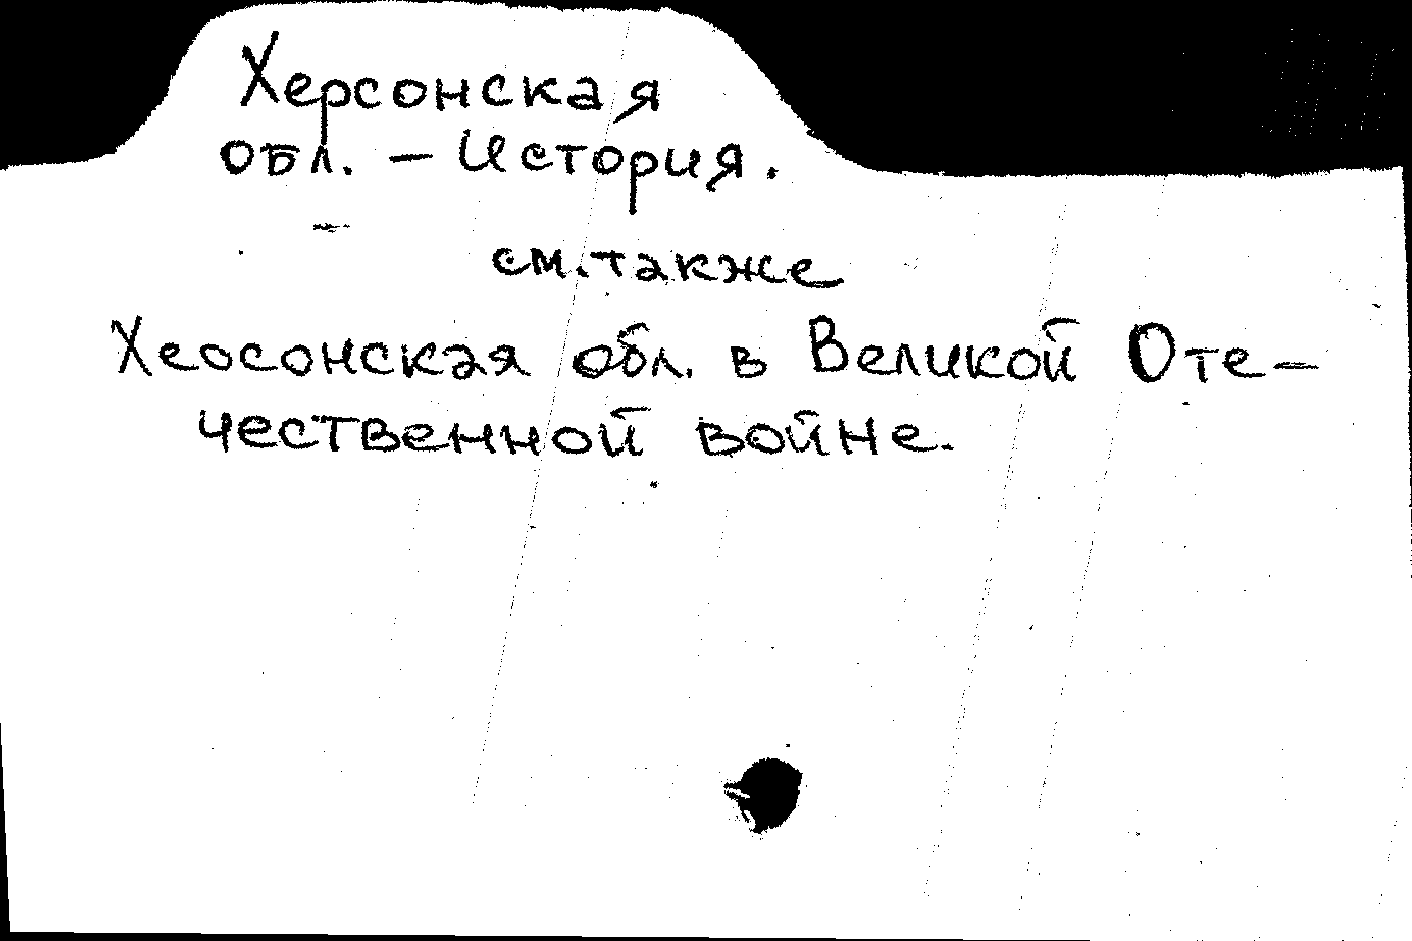 Херсонская
обл. – История.
см. также
Хеосонская обл. в Великой Оте-
чественной войне.